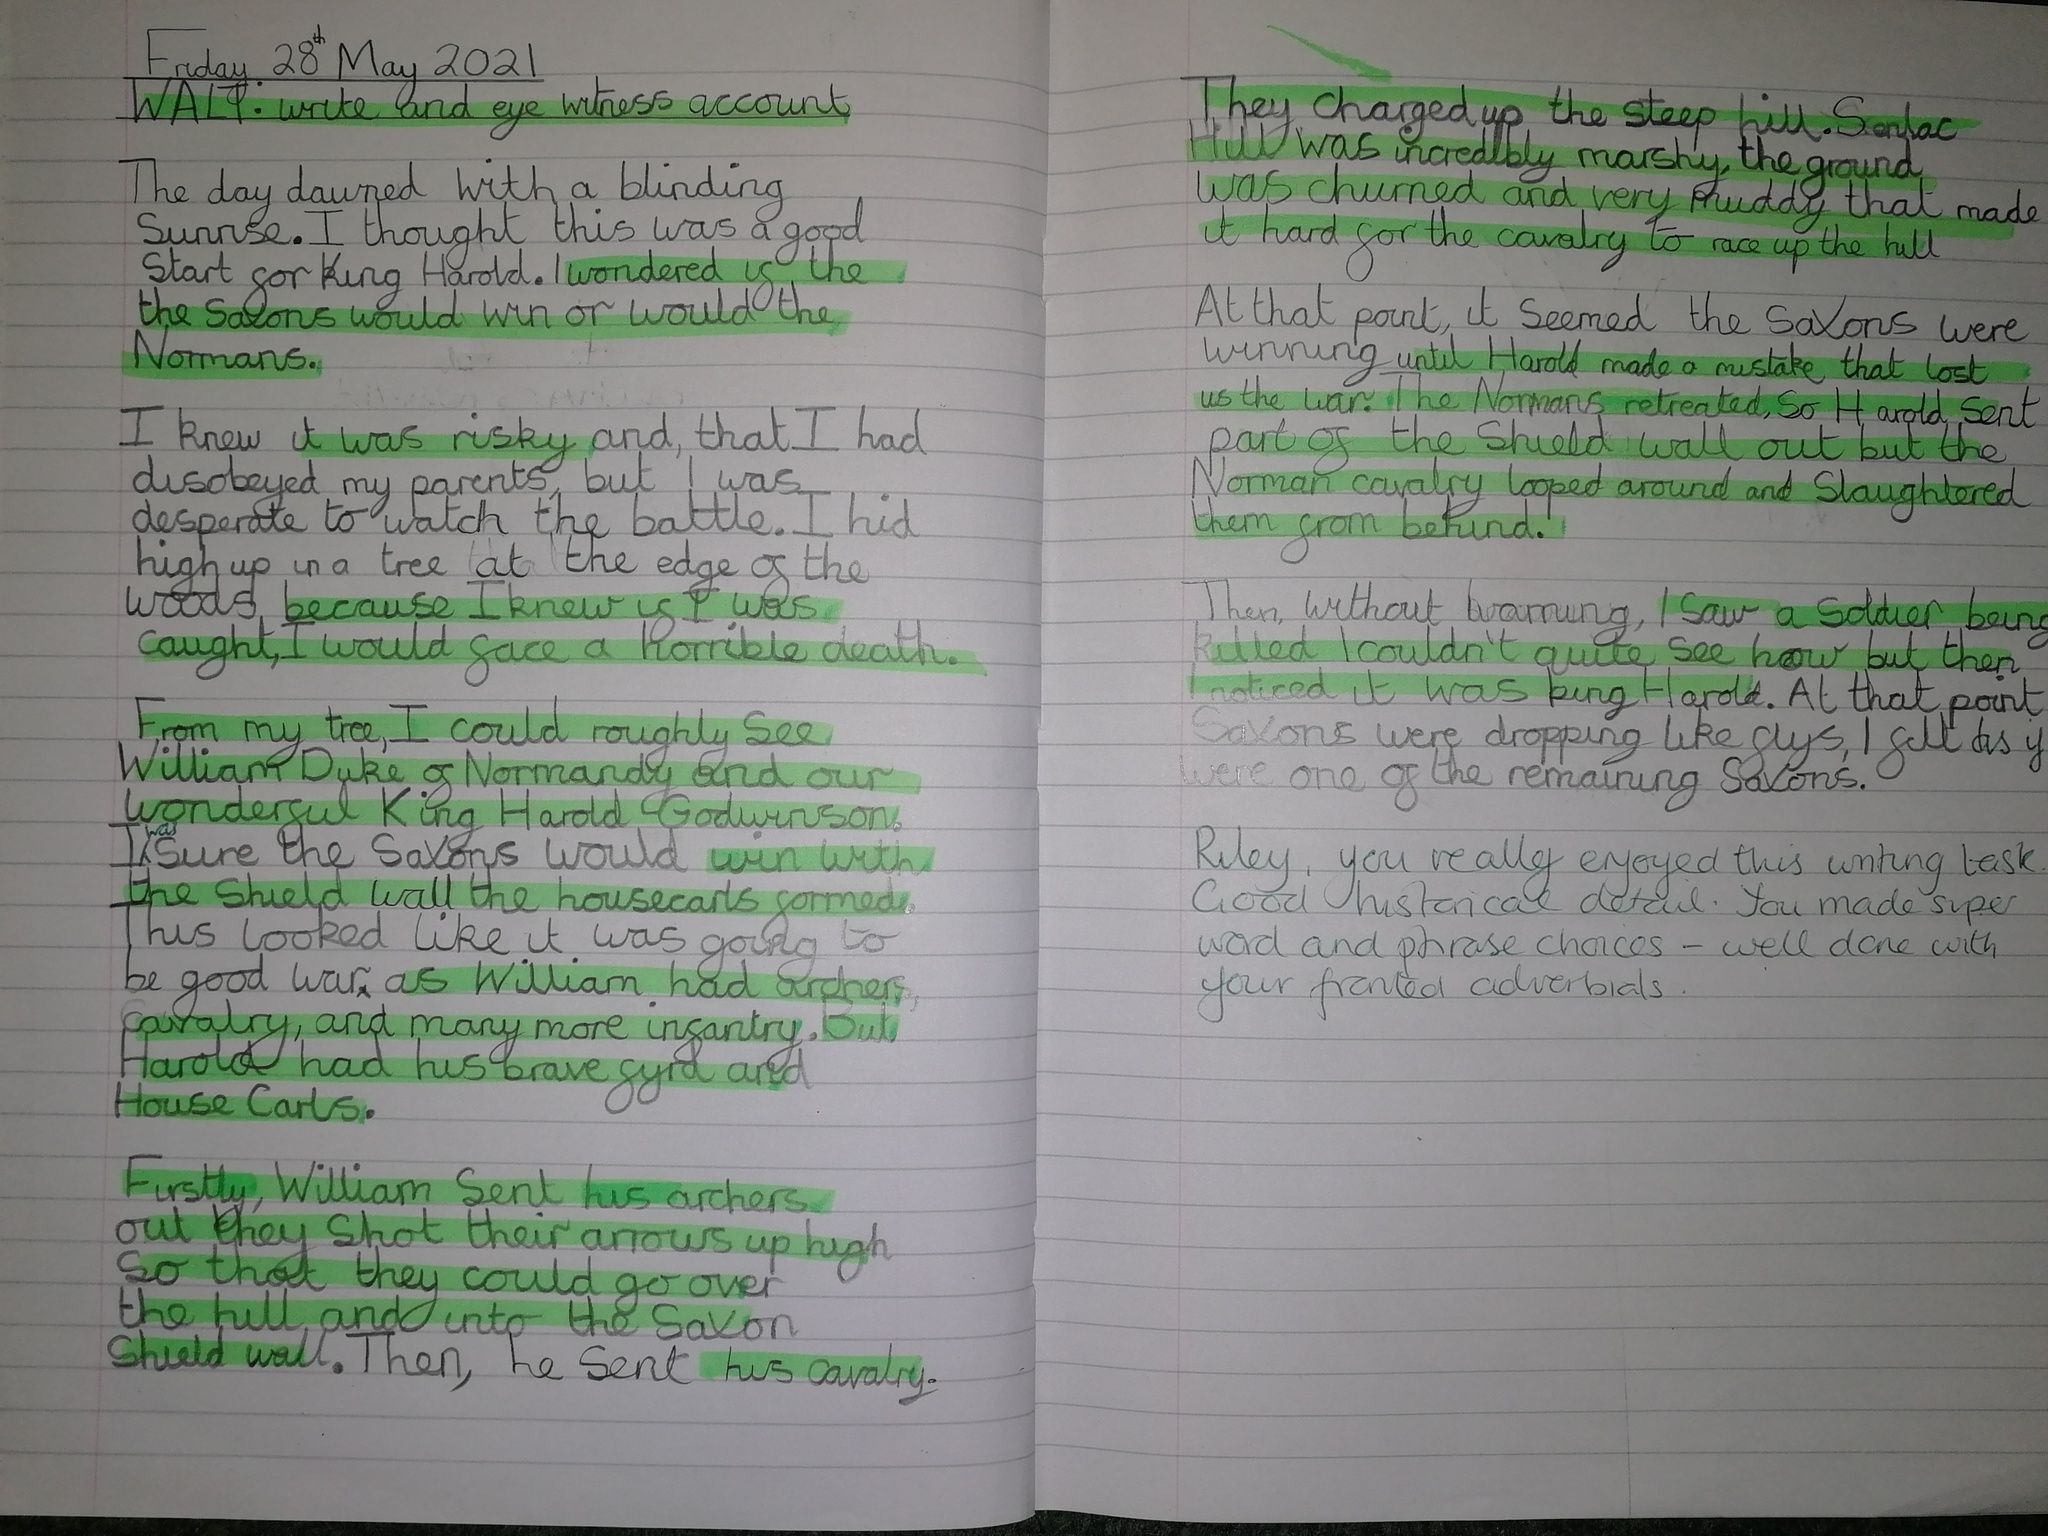 Friday 28th May 2021
WALT: write and eye witness account
The day dawned with a blinding
Sunrise. I thought this was a good
Start for King Harold. I wondered if the
the Saxons would win or would the
Normans.
I knew it was risky and, that I had
disobeyed my parents, but I was
desperate to watch the battle. I hid
high up in a tree at the edge of the
woods, because I knew if I was
caught, I would face a horrible death.
From my tree, I could roughly See
William Duke of Normandy and our
wonderful King Harold Godwinson.
I was Sure the Saxons would win with
the Shield wall the housecarls formed.
This looked like it was going to
be good war, as William had archers,
cavalry, and many more infantry. But
Harold had his brave fyrd and
House Carls.
Firstly, William Sent his archers
out they Shot their arrows up high
So that they could go over
the hill and into the Saxon
Shield wall. Then, he Sent his cavalry.
They charged up the steep hill. Senlac
Hill was incredibly marshy, the ground
was churned and very muddy that made
it hard for the cavalry to race up the hill
At that point, it Seemed the Saxons were
winning until Harold made a mistake that lost
us the war. The Normans retreated, So Harold Sent
part of the Shield wall out but the
Norman cavalry looped around and Slaughtered
them from behind!
Then, without warning, I Saw a Soldier being
killed I couldn't quite See how but then
I noticed it was king Harold. At that point
Saxons were dropping like flys, I fell as if
were one of the remaining Saxons.
Riley, you really enjoyed this writing task.
Good historical detail. You made super
word and phrase choices - well done with
your fronted adverbials.